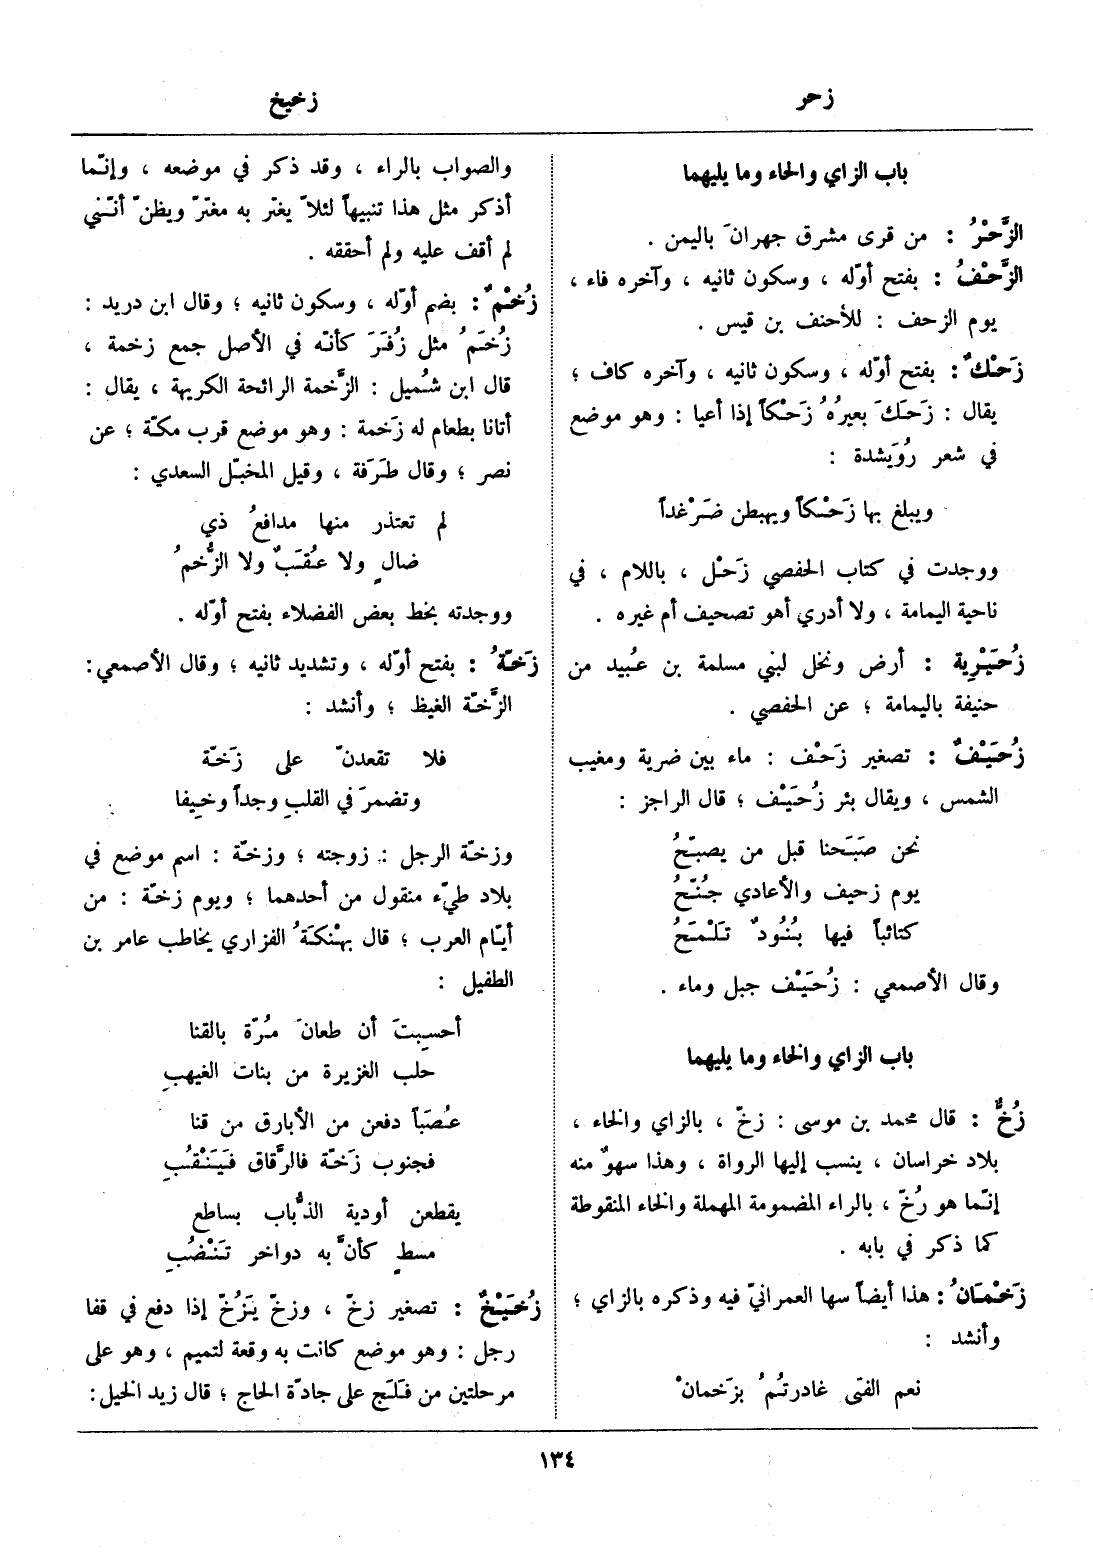 زحر
زخيخ
باب الزاي والحاء وما يليهما
الزَّحْرُ : من قرى مشرق جهرانَ باليمن .
الزَّحْفُ : بفتح أوّله ، وسكون ثانيه ، وآخره فاء ،
يوم الزحف : للأحنف بن قيس .
زَحْكٌ : بفتح أوّله ، وسكون ثانيه ، وآخره كاف ؛
يقال : زَحَكَ بعيرُهُ زَحْكاً إذا أعيا : وهو موضع
في شعر رُوَيشدة :
ويبلغ بها زَحْكاً ويهبطن ضَرْغداً
ووجدت في كتاب الحفصي زَحْل ، باللام ، في
ناحية اليمامة ، ولا أدري أهو تصحيف أم غيره .
زُحَيْرِية : أرض ونخل لبني مسلمة بن عُبيد من
حنيفة باليمامة ؛ عن الحفصي .
زُحَيْفٌ : تصغير زَحْف : ماء بين ضرية ومغيب
الشمس ، ويقال بئر زُحَيْف ؛ قال الراجز :
نحن صَبَحنا قبل من يصبّحُ
يوم زحيف والأعادي جُنّحُ
كتائباً فيها بُنُودٌ تَلْمَحُ
وقال الأصمعي : زُحَيْف جبل وماء .
باب الزاي والخاء وما يليهما
زُخٌّ : قال محمد بن موسى : زخّ ، بالزاي والخاء ،
بلاد خراسان ، ينسب إليها الرواة ، وهذا سهوٌ منه
إنّما هو رُخّ ، بالراء المضمومة المهملة والخاء المنقوطة
كما ذكر في بابه .
زَخْمَانُ : هذا أيضاً سها العمرانيّ فيه وذكره بالزاي ؛
وأنشد :
نعم الفتى غادرتُمُ بزَخمانْ
والصواب بالراء ، وقد ذكر في موضعه ، وإنّما
أذكر مثل هذا تنبيهاً لئلاّ يغتر به مغترّ ويظنّ أنّني
لم أقف عليه ولم أحققه .
زُخْمٌ : بضم أوّله ، وسكون ثانيه ؛ وقال ابن دريد :
زُخَمُ مثل زُفَرَ كأنّه في الأصل جمع زخمة ،
قال ابن شُميل : الزَّخمة الرائحة الكريهة ، يقال :
أتانا بطعام له زَخمة : وهو موضع قرب مكّة ؛ عن
نصر ؛ وقال طَرَفة ، وقيل المخبّل السعدي :
لم تعتذر منها مدافعُ ذي
ضالٍ ولا عُقَبٌ ولا الزُّخمُ
ووجدته بخط بعض الفضلاء بفتح أوّله .
زَخّةُ : بفتح أوّله ، وتشديد ثانيه ؛ وقال الأصمعي :
الزَّخّة الغيظ ؛ وأنشد :
فلا تقعدنّ على زَخّة
وتضمرَ في القلبِ وجداً وخيفا
وزخّة الرجل : زوجته ؛ وزخّة : اسم موضع في
بلاد طيّء منقول من أحدهما ؛ ويوم زخّة : من
أيّام العرب ؛ قال بهْنكَةُ الفزاري يخاطب عامر بن
الطفيل :
أحسِبتَ أن طعانَ مُرّة بالقنا
حلب الغزيرة من بنات الغيهبِ
عُصَباً دفعن من الأبارق من قنا
فجنوب زَخّة فالرَّقاق فيَنْقُبِ
يقطعن أودية الذُّباب بساطع
مسطٍ كأنَّ به دواخر تَنْضُبِ
زُخَيْخٌ : تصغير زخّ ، وزخّ يَزُخّ إذا دفع في قفا
رجل : وهو موضع كانت به وقعة لتميم ، وهو على
مرحلتين من فَلَج على جادّة الحاج ؛ قال زيد الخيل :
١٣٤